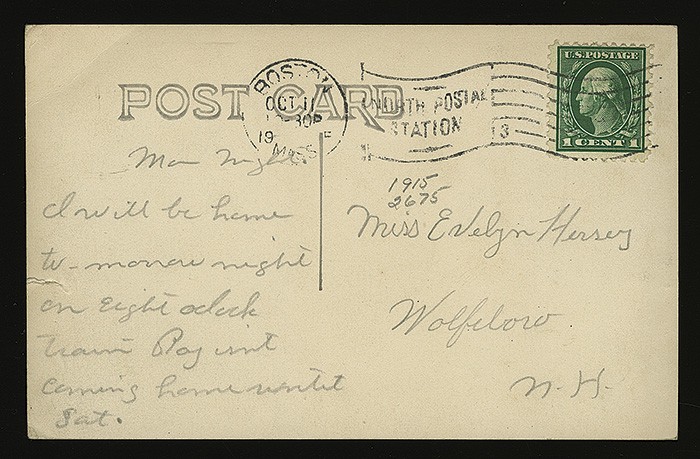 POST CARD
BOSTON
OCT 11
30P
19
MASS
NORTH POSTAL
STATION
U.S. POSTAGE
1 CENT 1
Mon Night.
I will be home
to-morrow night
on Eight oclock
train Ray isnt
coming home until
Sat.
1915
2675
Miss Evelyn Hersey
Wolfeboro
N.H.